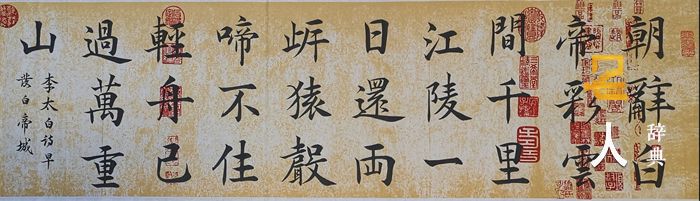 朝辭白
帝彩雲
間千里
江陵一
日還両
岸猿聲
啼不住
輕舟已
過萬重
山
李太白詩早
發白帝城
人
辞典